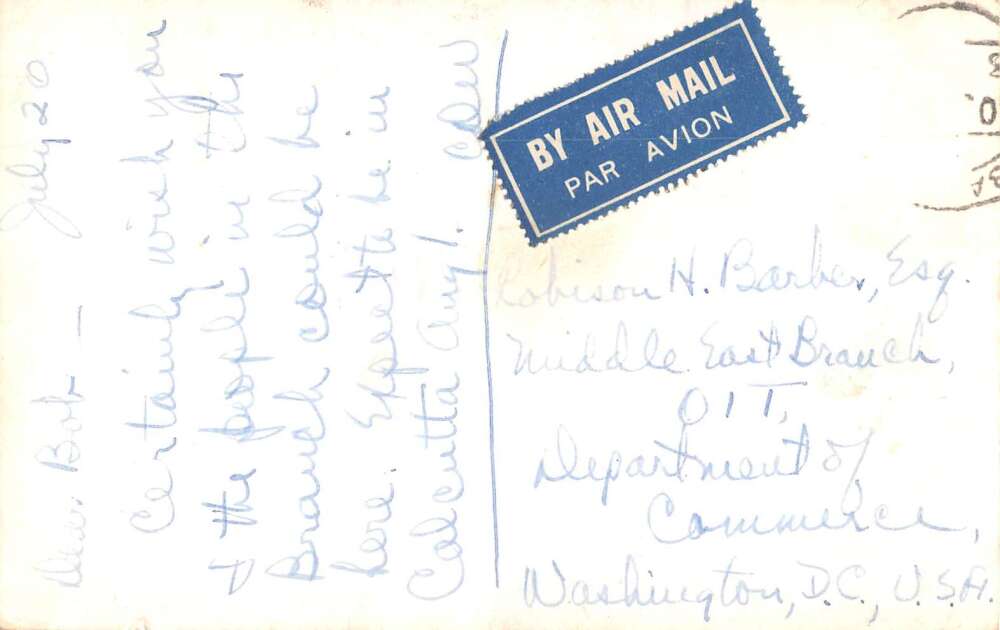 July 20
Dear Bob —
Certainly wish you
& the people in the
Branch could be
here. Expect to be in
Calcutta Aug 1.
BY AIR MAIL
PAR AVION
Robison H. Barber, Esq.
Middle East Branch,
OIT,
Department of
Commerce,
Washington, D.C., U.S.A.